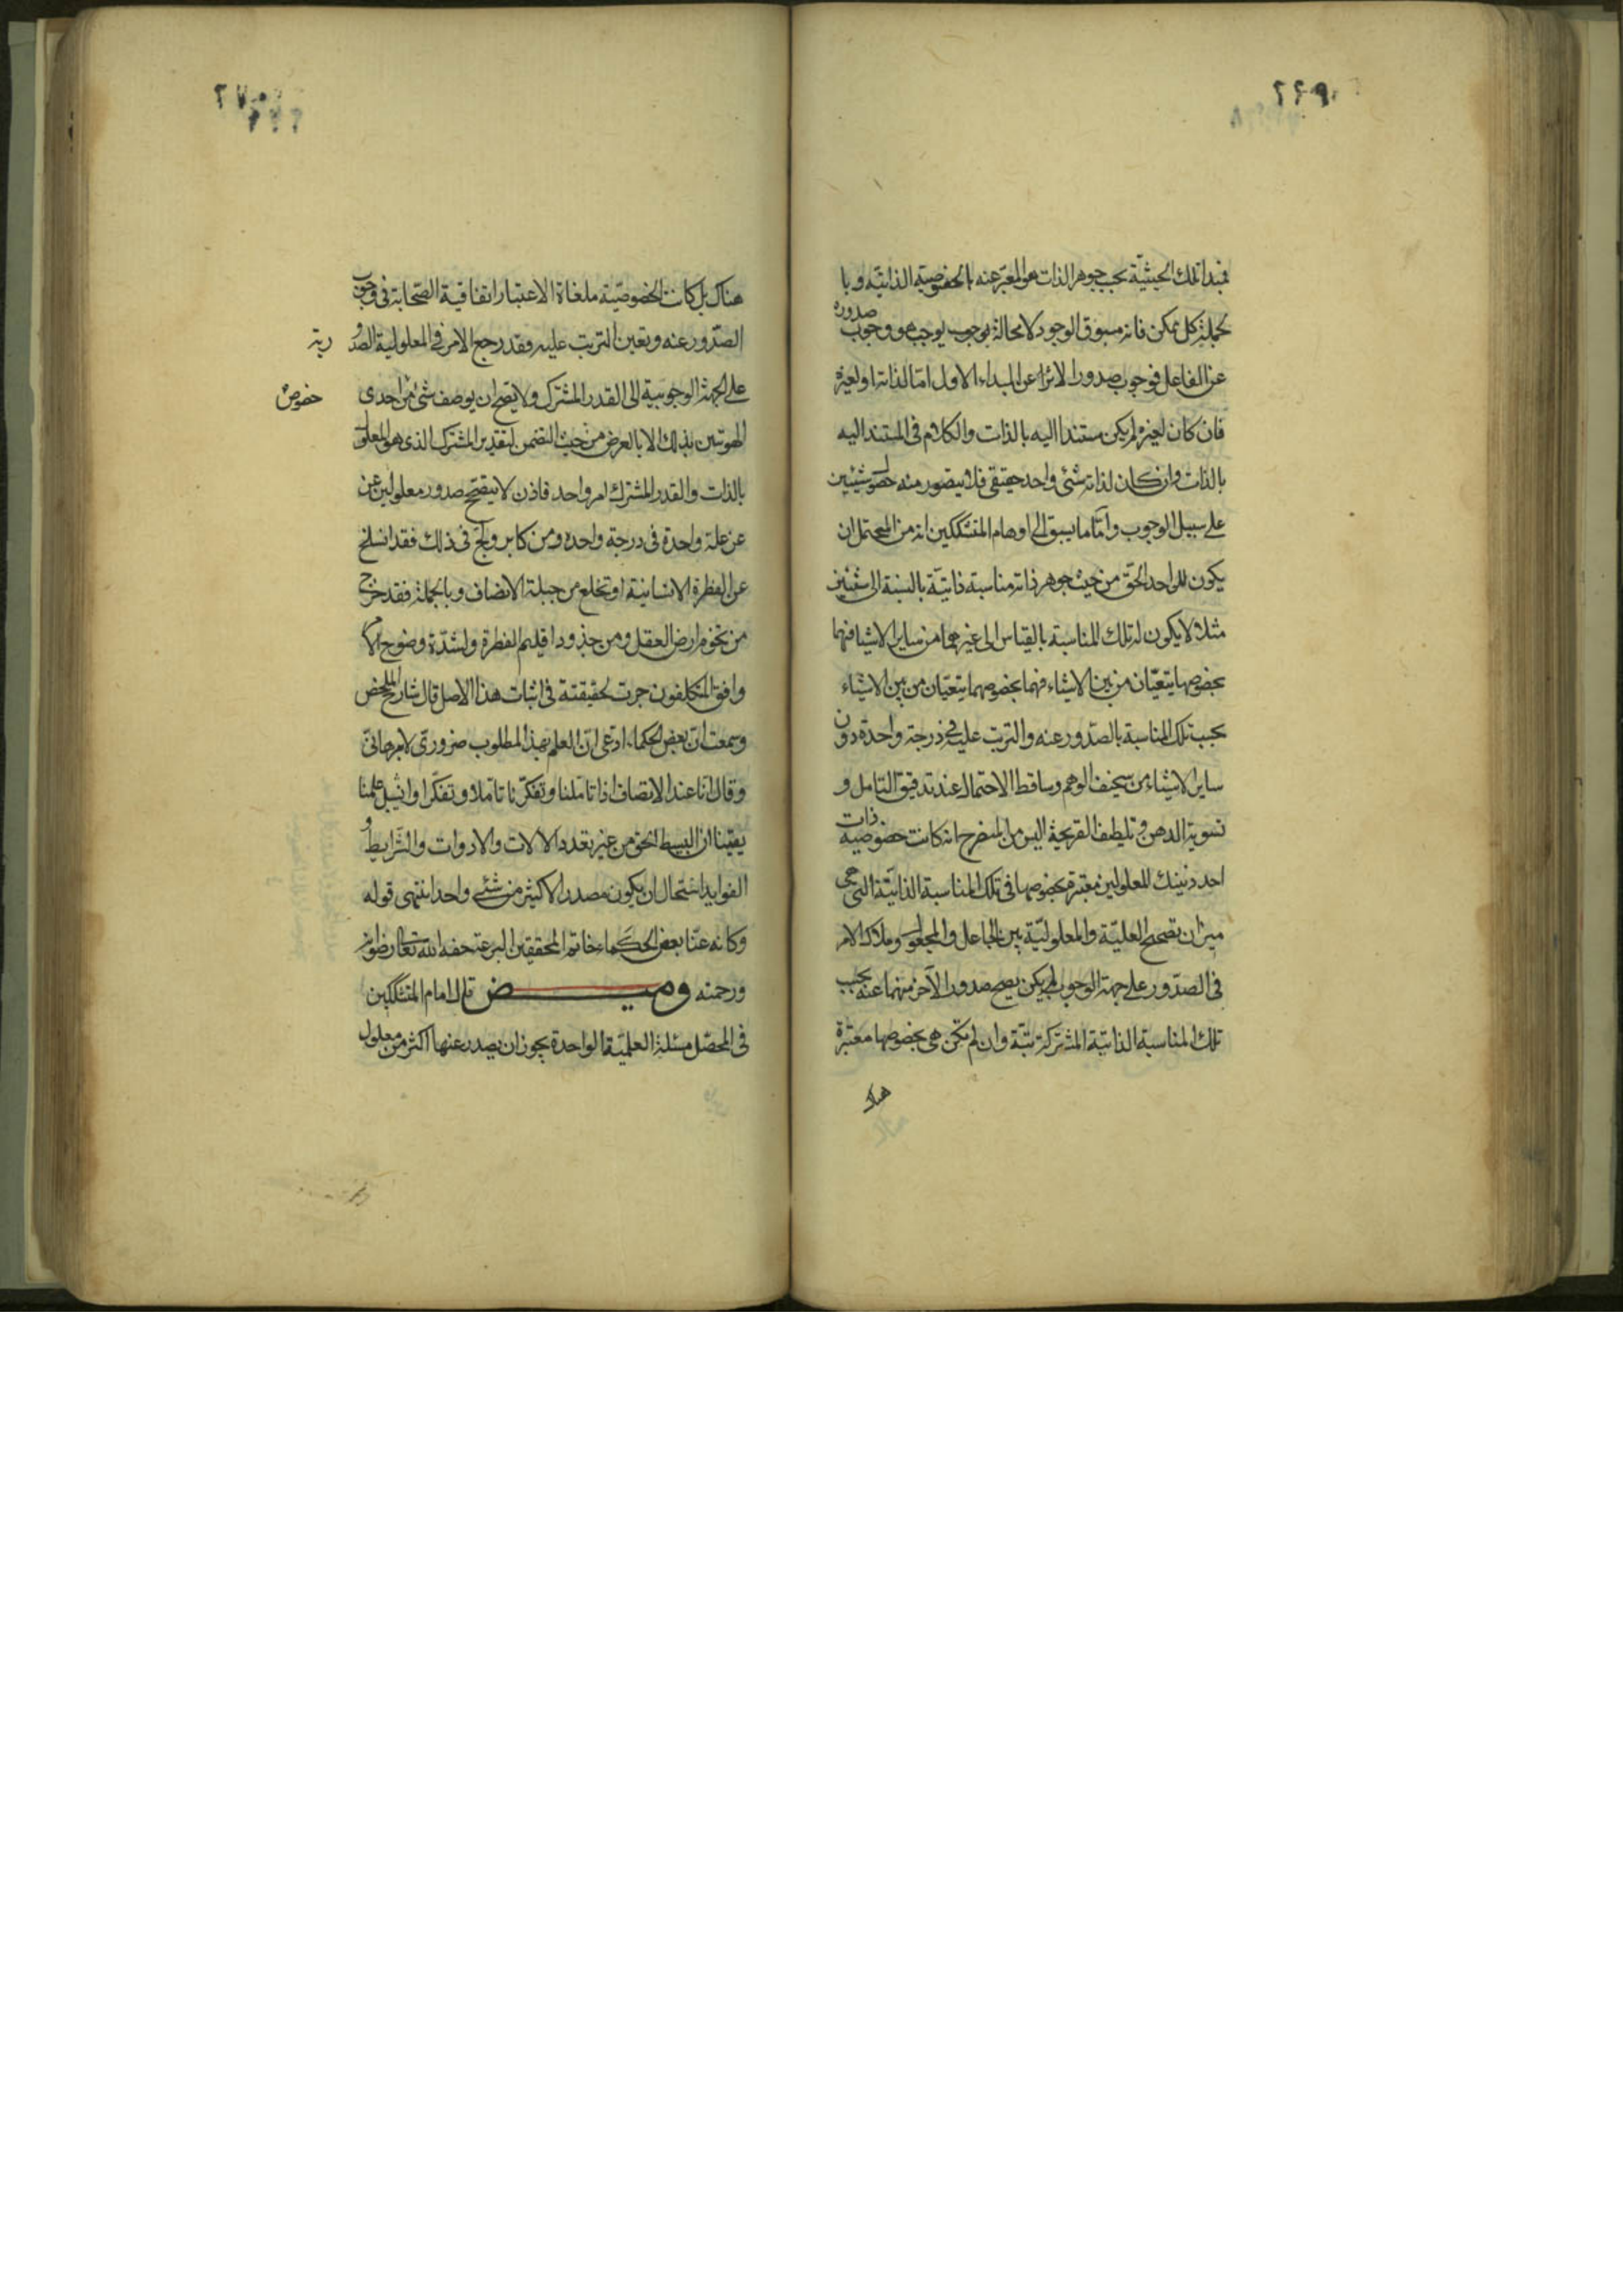 ٢٦٩
فمبدا تلك الحيثية بحسب جوهر الذات هو المعبر عنه بالخصوصية الذاتية وبا
لجملة كل ممكن فانه مسبوق الوجود لا محالة بوجوب يوجب هو وجوب صدوره
عن الفاعل فوجوب صدور الاثر عن المبداء الاول اما لذاته او لغيره
فان كان لغيره لم يكن مستندا اليه بالذات والكلام فى المستند اليه
بالذات وان كان لذاته شئ واحد حقيقى فلا يتصور منه حصول شيئين
على سبيل الوجوب وامّا ما يسبق الى اوهام المتشككين انه من المحتمل ان
يكون للواحد الحقّ من حيث جوهر ذاته مناسبة ذاتيّة بالنسبة الى شيئين
مثلا لا يكون له تلك المناسبة بالقياس الى غيرهما من ساير الاشيا فهما
بخصوصهما يتعيّنان من بين الاشياء فهما بخصوصهما يتعيّنان من بين الاشياء
بحسب تلك المناسبة بالصدّور عنه والترتب عليه فى درجة واحدة دون
ساير الاشياء من سخيف الوهم وساقط الاحتمال عند تدقيق التامل و
تسوية الدهن وتلطيف القريحة اليس من المنصرح انه كانت خصوصية ذات
احد ذينك المعلولين معتبرة بخصوصها فى تلك المناسبة الذاتيّة التى هى
ميزان تصحيح العليّة والمعلوليّة بين الجاعل والمجعول وملاك الامر
فى الصدّور على جهة الوجوب لم يكن يصح صدور الآخر منهما عنه بحسب
تلك المناسبة الذاتيّة المشتركة بتّة وان لم تكن هى بخصوصها معتبرة
هناك
٢٧٠
هناك بل كانت الخصوصيّة ملغاة الاعتبار اتفاقية الصّحابة فى وجوب
الصدّور عنه وتعين الترتب عليه فقد رجع الامر فى المعلولية الصدو
رية
على الجهة الوجوبية الى القدر المشترك ولا يصح ان يوصف شئ من احدى
خصوص
الهويتين بذلك الا بالعرض من حيث التضمن لتقدير المشترك الذى هو المعلول
بالذات والقدر المشترك امر واحد فاذن لا يتصحح صدور معلولين عن
عن علة واحدة فى درجة واحدة ومن كابر ولجّ فى ذلك فقد انسلخ
عن الفطرة الانسانية او تخلع من جبلة الانصاف وبالجملة فقد خرج
من تخوم ارض العقل ومن حدود اقليم الفطرة ولشدّة وضوح الامر
وافق المتكلفون حرت لحقيقته فى اثبات هذا الاصل قال شارح الملخص
وسمعت انّ بعض الحكماء ادعى انّ العلم بهذا المطلوب ضرورىّ لا برهانىّ
وقال انا عند الانصاف اذا تاملنا وتفكّرنا تاملا وتفكّرا وانيبل علمنا
يقينا ان البسيط الحق من غير تعدد الالات والادوات والشّرايط و
الفوايد استحال ان يكون مصدر الاكثر من شئ واحد انتهى قوله
وكانه عنا بعض الحكماء خاتم المحققين البرعة حفه الله تعالى رضوانه
ورحمته وميـــض قال امام المتشككين
فى المحصّل مسئلة العلميّة الواحدة يجوز ان يصدر عنها اكثر من معلول